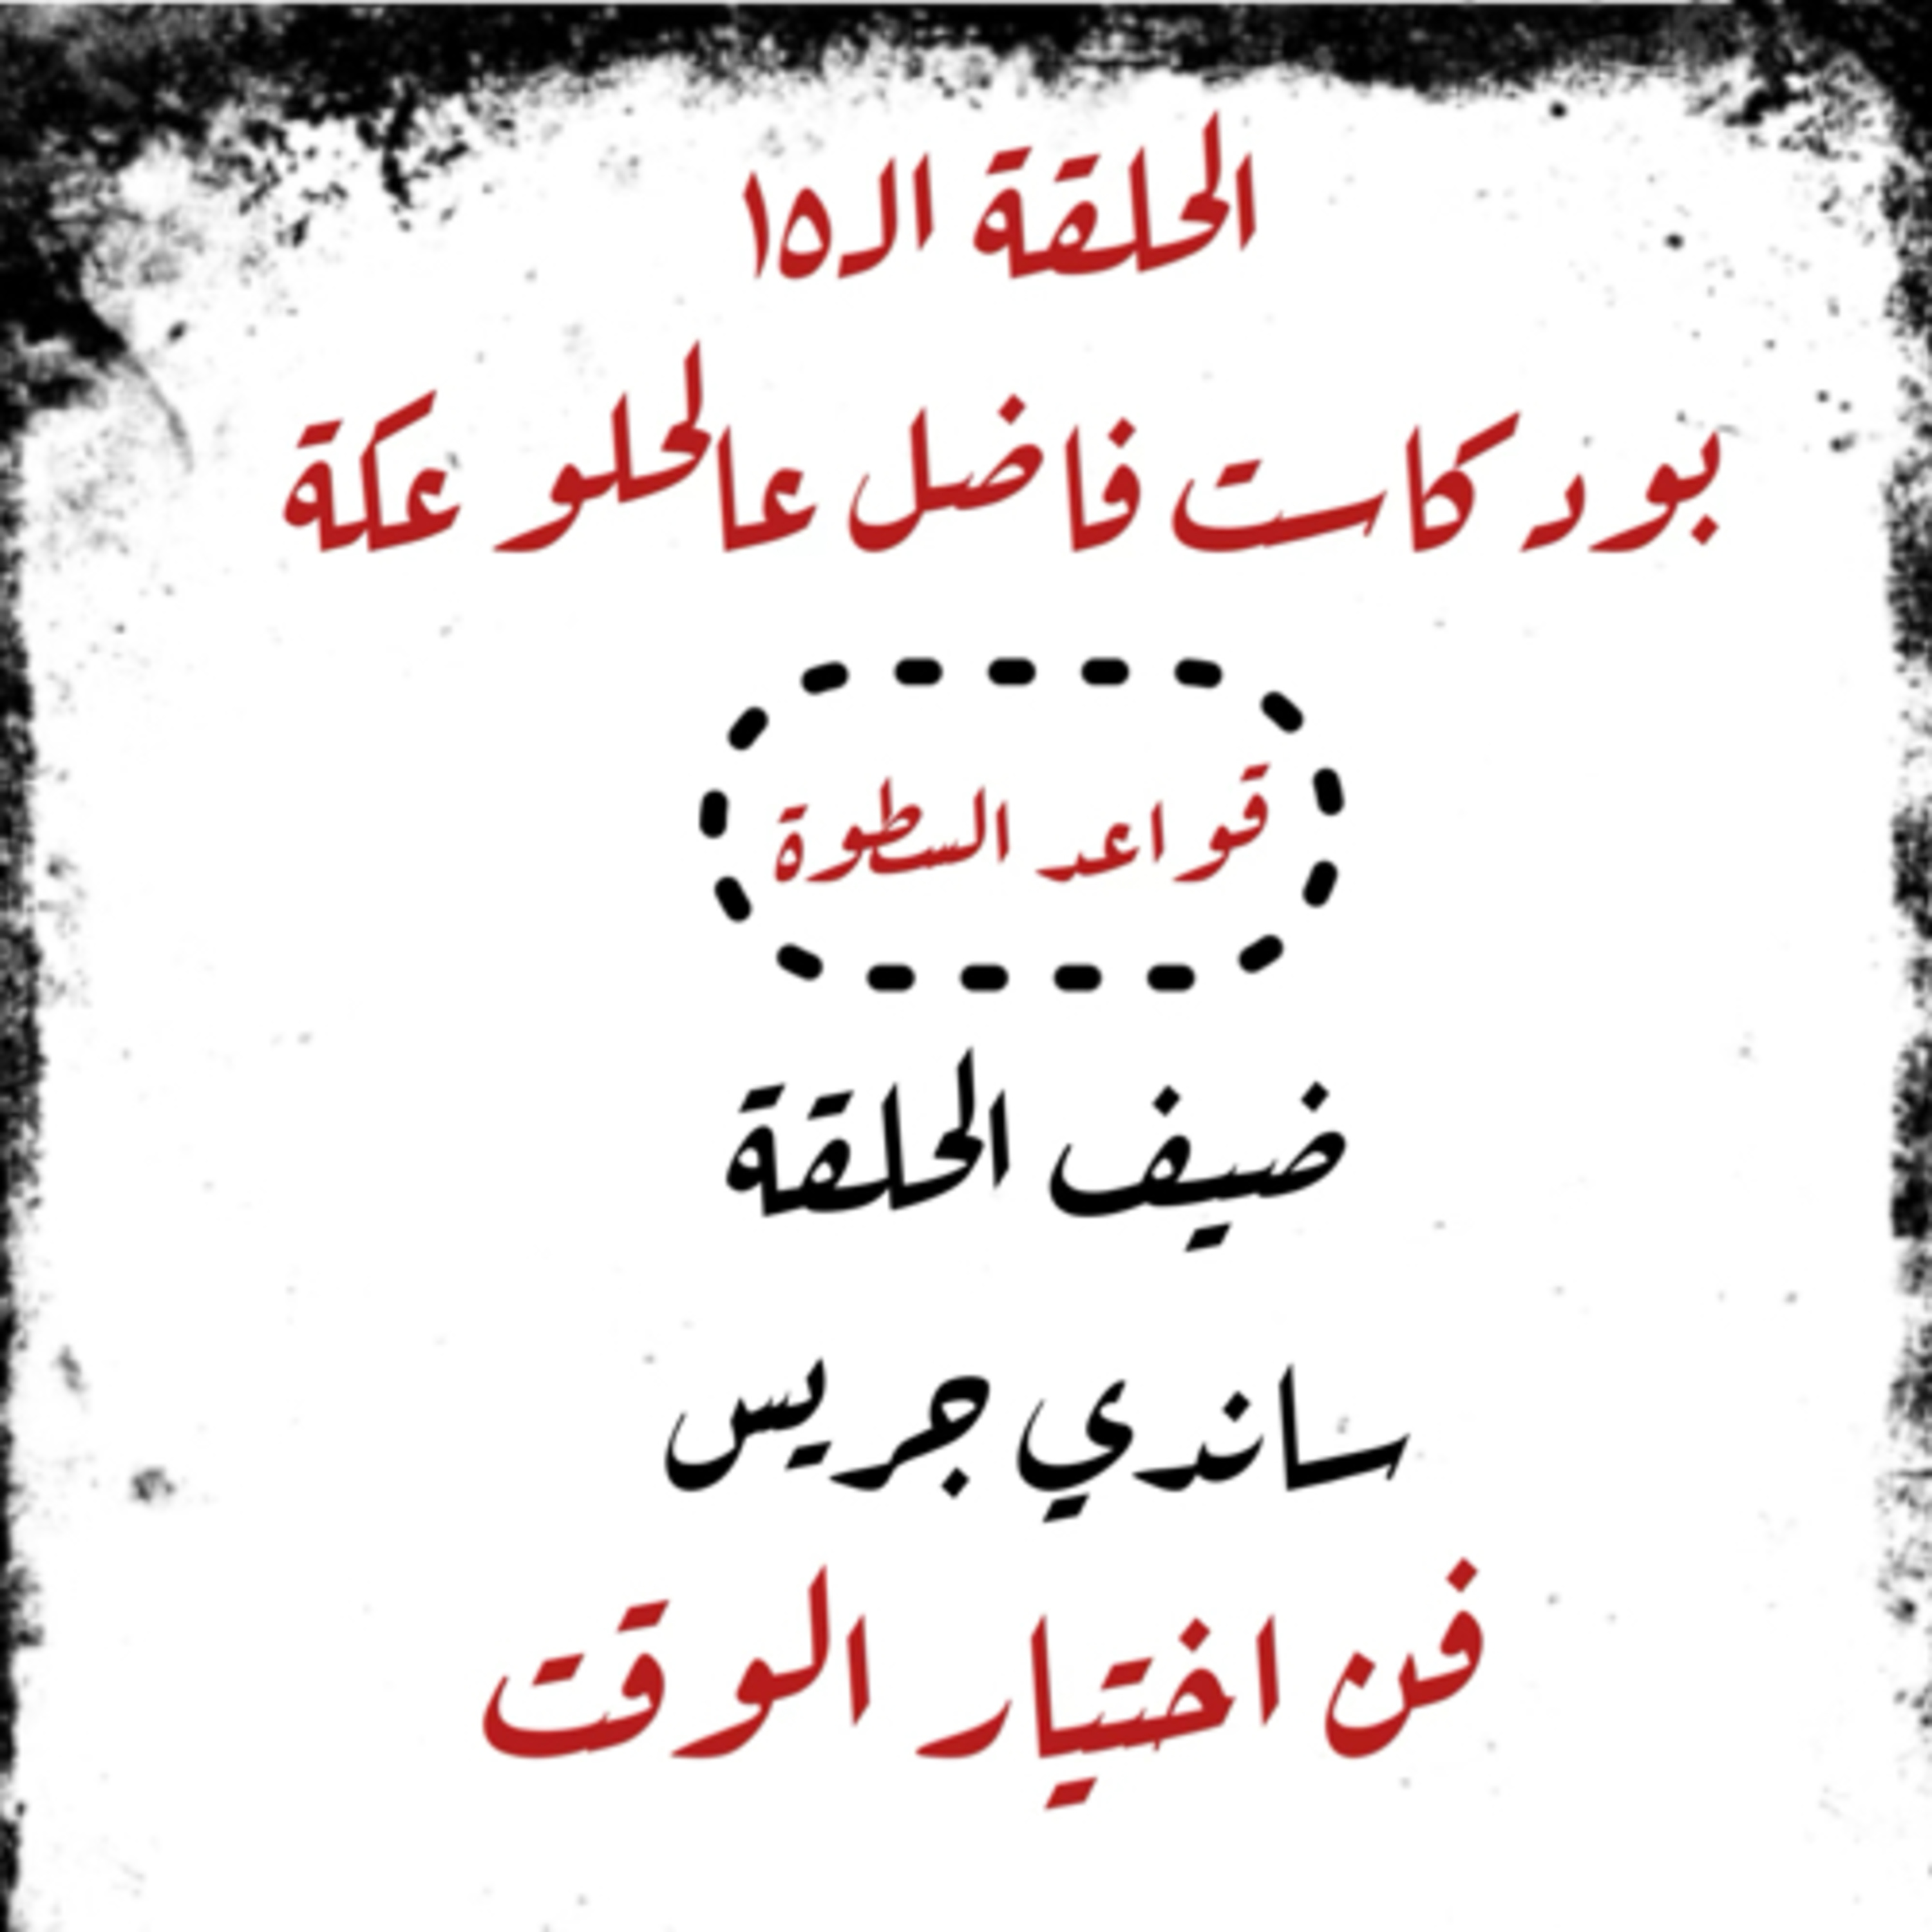 الحلقة الـ١٥
بودكاست فاضل عالحلو عكة
قواعد السطوة
ضيف الحلقة
ساندي جريس
فن اختيار الوقت